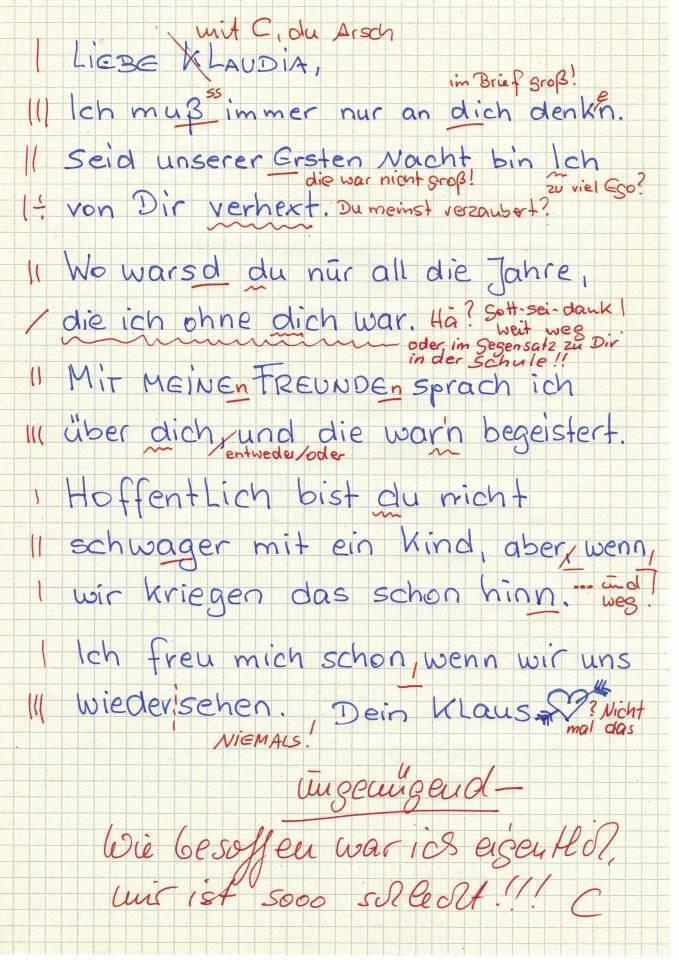 mit C, du Arsch
LIEBE KLAUDIA,
im Brief groß!
ss e
Ich muß immer nur an dich denk'n.
Seid unserer Ersten Nacht bin Ich
die war nicht groß! zu viel Ego?
von Dir verhext. Du meinst verzaubert?
Wo warsd du nur all die Jahre,
die ich ohne dich war. Hä? Gott-sei-dank!
weit weg
oder, im Gegensatz zu Dir
in der Schule!!
MIT MEINEn FREUNDEn sprach ich
über dich, und die war'n begeistert.
entweder/oder
Hoffentlich bist du nicht
schwager mit ein Kind, aber, wenn,
wir kriegen das schon hinn. ... und
weg!
Ich freu mich schon, wenn wir uns
wieder sehen. Dein KLAUS ? Nicht
mal das
NIEMALS!
ungenügend –
Wie besoffen war ich eigentlich,
mir ist sooo schlecht!!! C